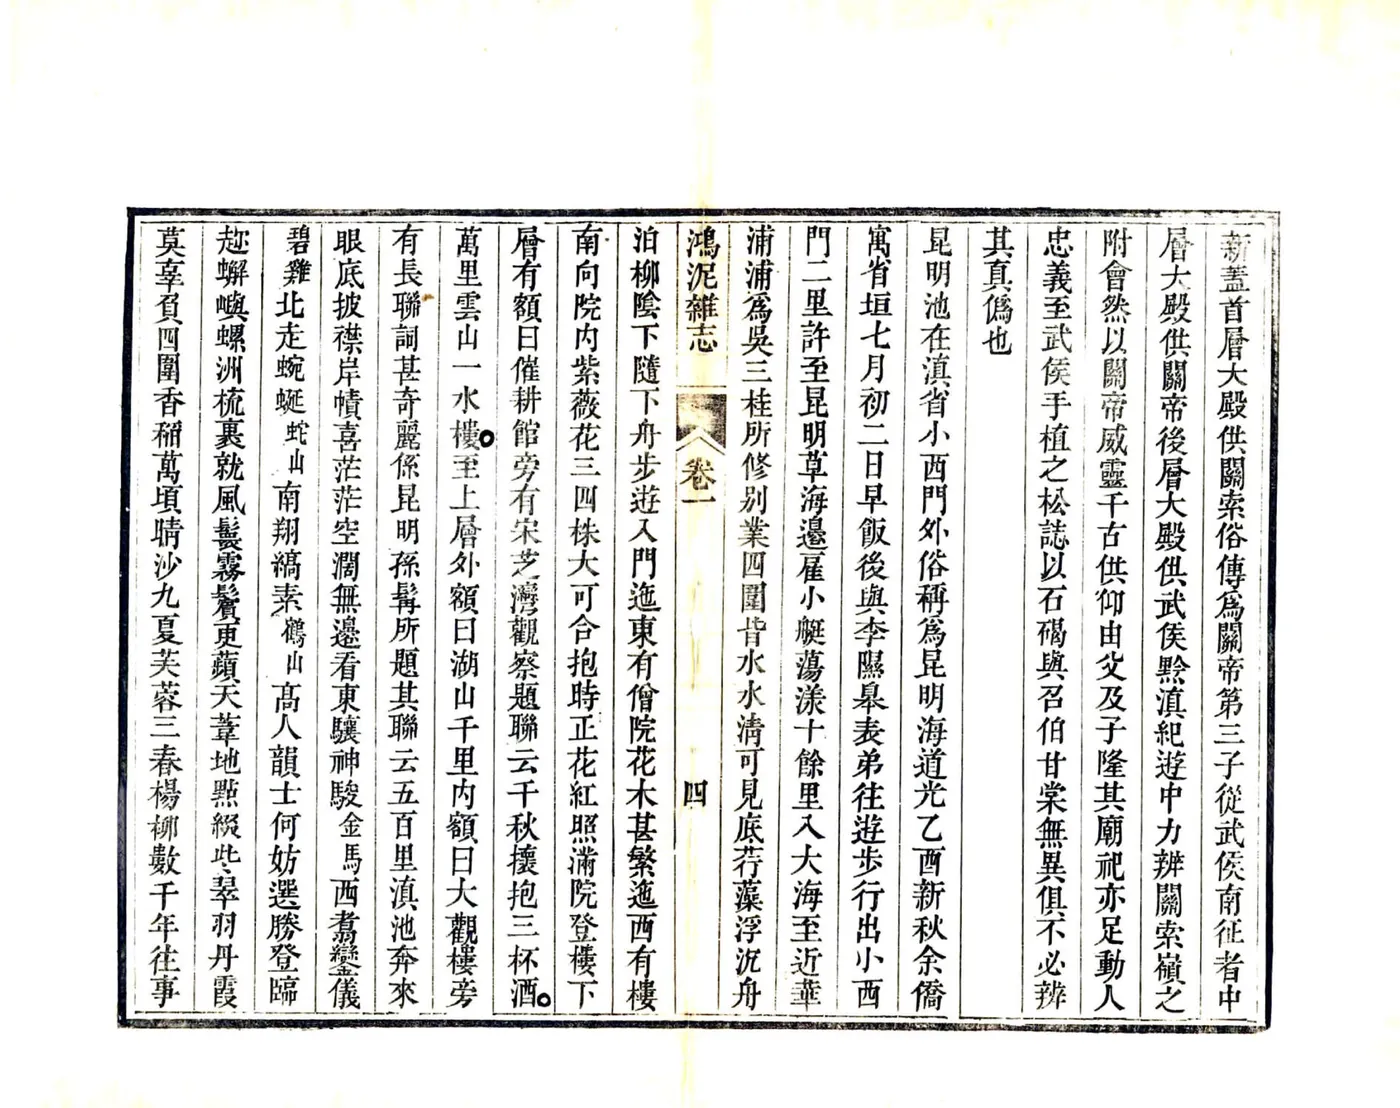 新蓋首層大殿供關索俗傳爲關帝第三子從武侯南征者中
層大殿供關帝後層大殿供武侯黔滇紀遊中力辨關索嶺之
附會然以關帝威靈千古供仰由父及子隆其廟祀亦足動人
忠義至武侯手植之松誌以石碣與召伯甘棠無異俱不必辨
其真僞也
昆明池在滇省小西門外俗稱爲昆明海道光乙酉新秋余僑
寓省垣七月初二日早飯後與李隰皋表弟往遊步行出小西
門二里許至昆明草海邊雇小艇蕩漾十餘里入大海至近華
浦浦爲吳三桂所修别業四圍皆水水清可見底荇藻浮沉舟
鴻泥雜志 卷一 四
泊柳陰下隨下舟步遊入門迤東有僧院花木甚繁迤西有樓
南向院内紫薇花三四株大可合抱時正花紅照滿院登樓下
層有額曰催耕館旁有宋芝灣觀察題聯云千秋懷抱三杯酒
萬里雲山一水樓至上層外額曰湖山千里内額曰大觀樓旁
有長聯詞甚奇麗係昆明孫髯所題其聯云五百里滇池奔來
眼底披襟岸幘喜茫茫空濶無邊看東驤神駿金馬西翥鸞儀
碧雞北走蜿蜒蛇山南翔縞素鶴山高人韻士何妨選勝登臨
趂蠏嶼螺洲梳裹就風鬟霧鬢更蘋天葦地㸃綴些翠羽丹霞
莫辜負四圍香稲萬頃晴沙九夏芙蓉三春楊柳數千年往事